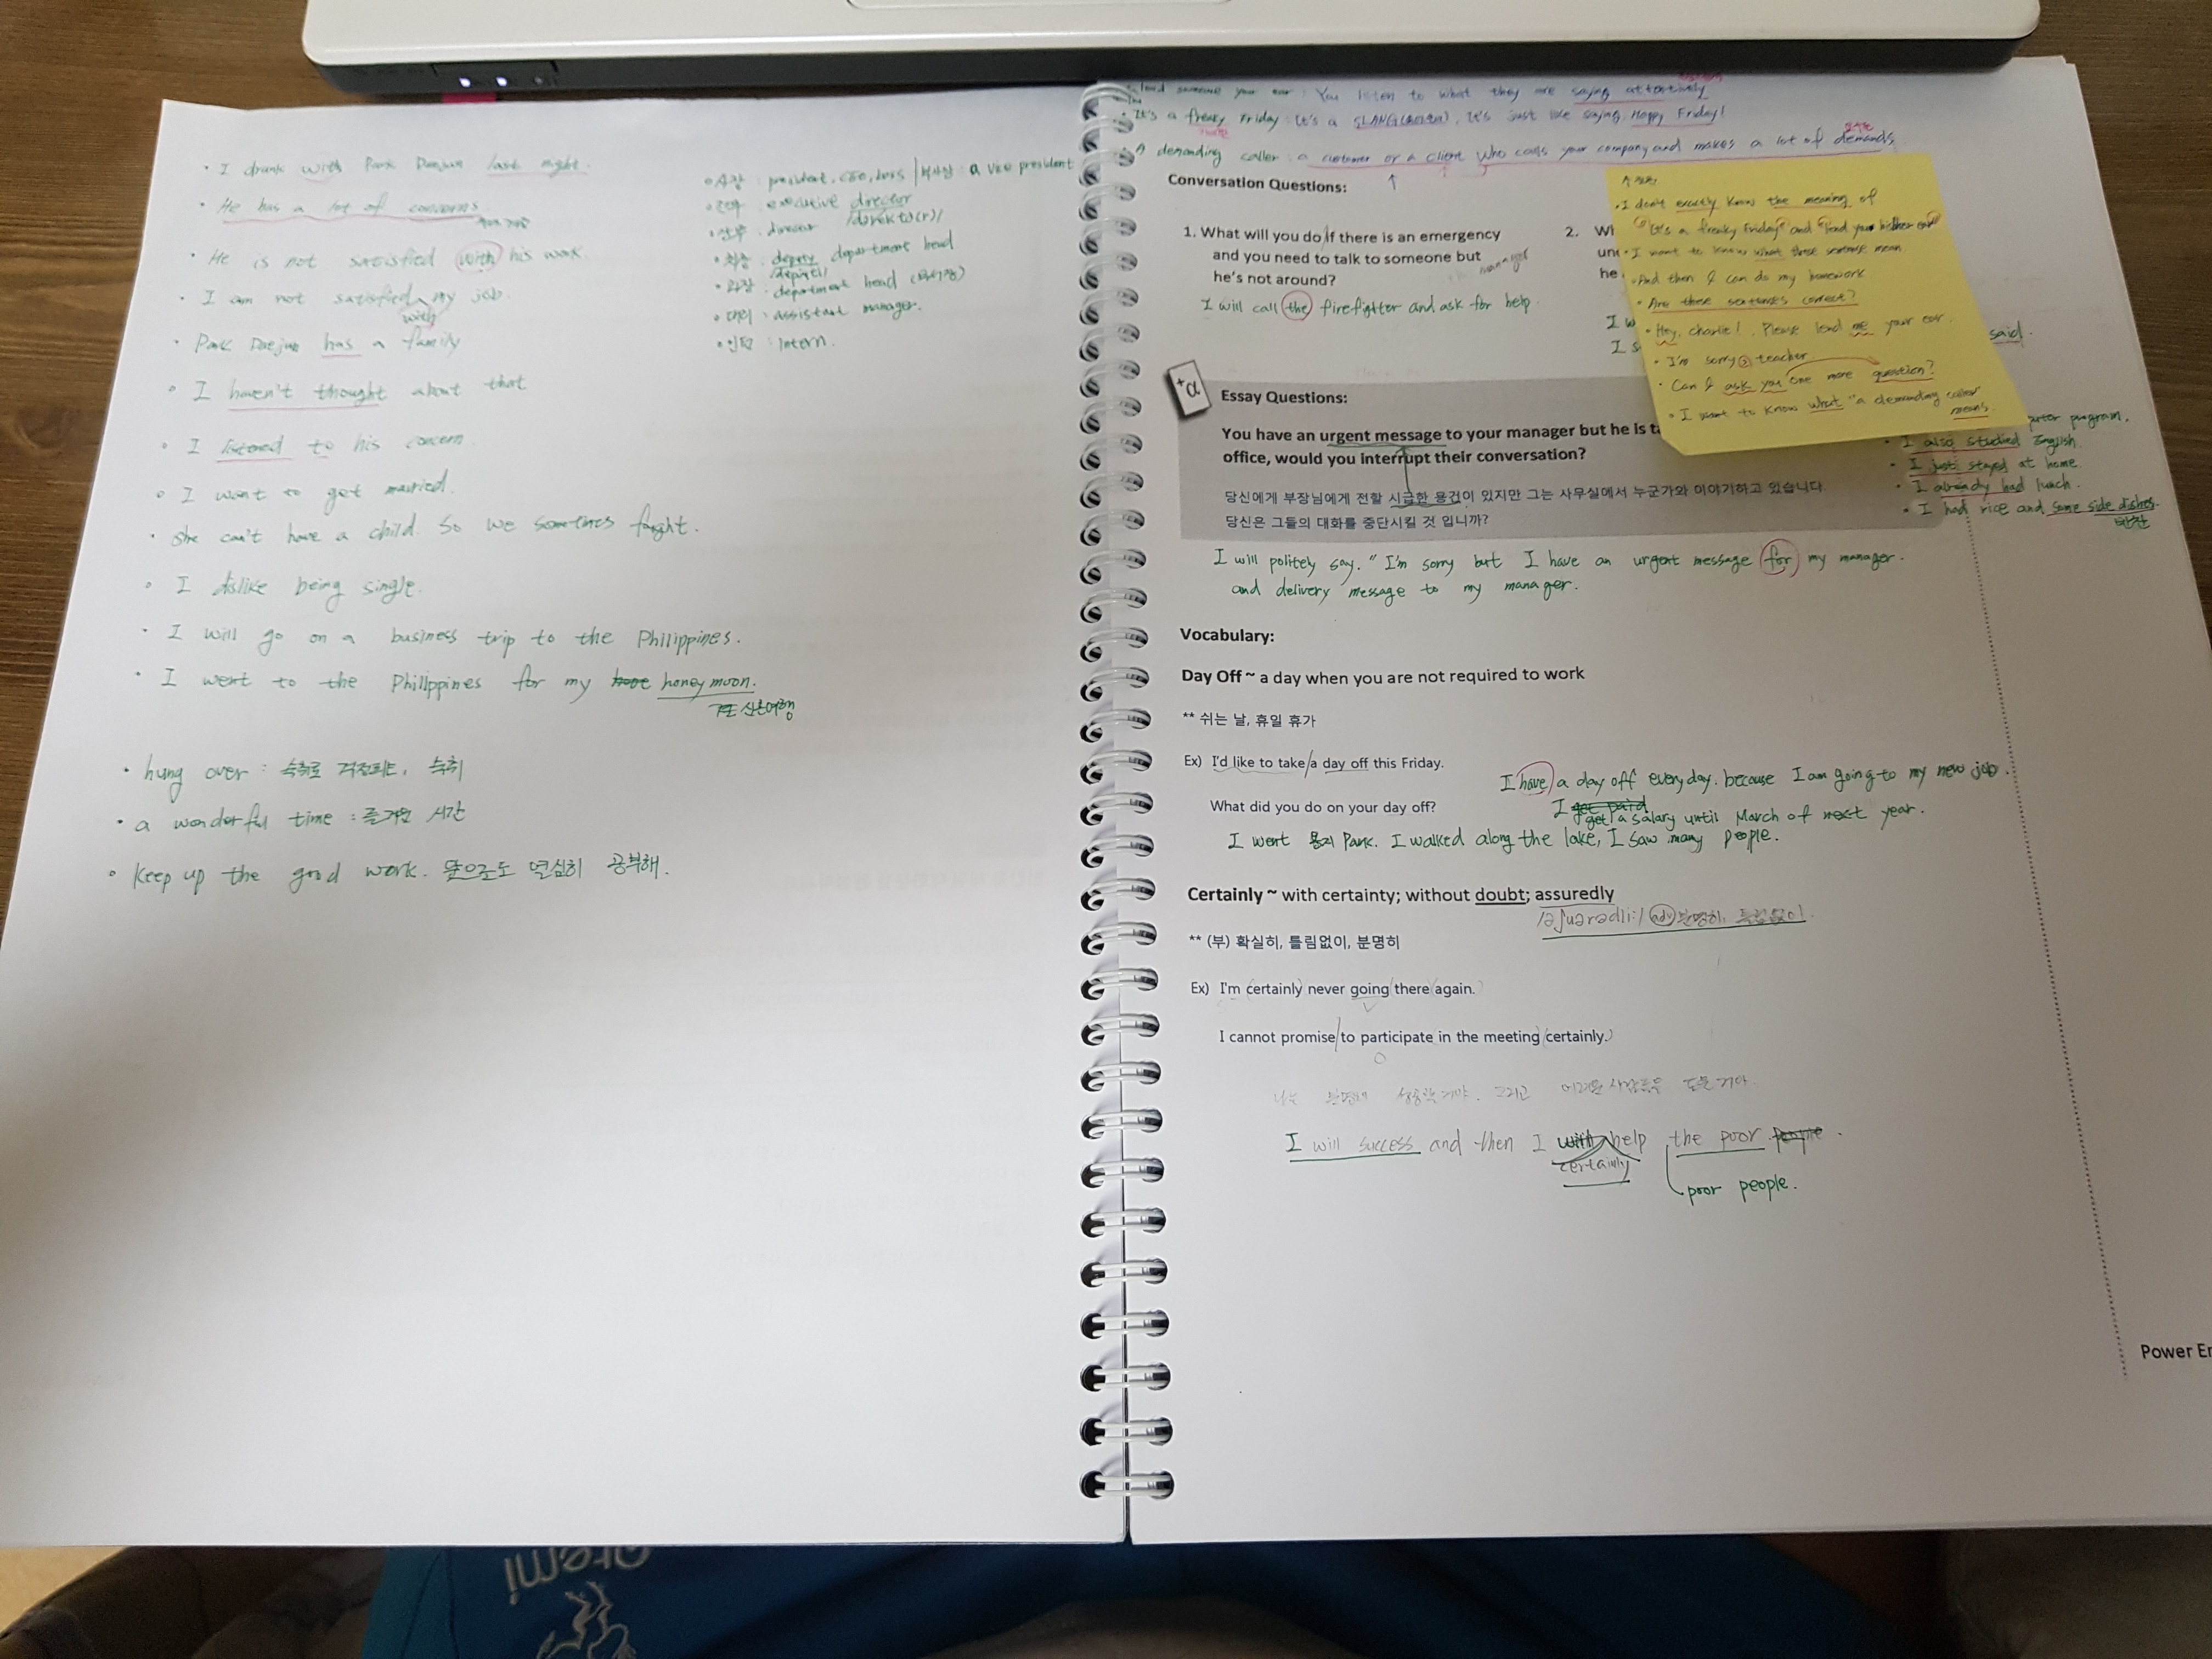 • I drank with Park Daejun last night.
• He has a lot of concerns.
• He is not satisfied with his work.
• I am not satisfied my job.
with
• Park Daejun has a family
• I haven't thought about that
• I listened to his concern.
• I want to get married.
• she can't have a child. So we sometimes fought.
• I dislike being single.
• I will go on a business trip to the Philippines.
• I went to the Philippines for my honeymoon.
신혼여행
• hung over : 숙취
• a wonderful time : 즐거운 시간
• keep up the good work. 앞으로도 열심히 공부해.
• 사장 : president, CEO, boss / 부사장 : a vice president
• 전무 : executive director
• 상무 : director
• 차장 : deputy department head
• 과장 : department head
• 대리 : assistant manager.
• 인턴 : Intern.
lend someone your ear : You listen to what they are saying attentively
• It's a freaky Friday : It's a SLANG. It's just like saying Happy Friday!
• A demanding caller : a customer or a client who calls your company and makes a lot of demands.
Conversation Questions:
1. What will you do if there is an emergency
and you need to talk to someone but
he's not around?
manager
I will call the firefighter and ask for help
2. Wh
un
he
I w
I s
said.
• I don't exactly know the meaning of
"It's a freaky Friday" and "lend your ear"
• I want to know what these sentence mean.
• And then I can do my homework
• Are these sentences correct?
• Hey, charlie! Please lend me your ear.
• I'm sorry, teacher
• Can I ask you one more question?
• I want to know what "a demanding caller"
means.
+α
Essay Questions:
You have an urgent message to your manager but he is ta
office, would you interrupt their conversation?
당신에게 부장님에게 전할 시급한 용건이 있지만 그는 사무실에서 누군가와 이야기하고 있습니다.
당신은 그들의 대화를 중단시킬 것 입니까?
program.
• I also studied English.
• I just stayed at home.
• I already had lunch.
• I had rice and some side dishes.
반찬
I will politely say. "I'm sorry but I have an urgent message for my manager.
and delivery message to my manager.
Vocabulary:
Day Off ~ a day when you are not required to work
** 쉬는 날, 휴일 휴가
Ex) I'd like to take a day off this Friday.
I have a day off everyday. because I am going to my new job.
What did you do on your day off?
I get paid
get a salary until March of next year.
I went 용지 Park. I walked along the lake, I saw many people.
Certainly ~ with certainty; without doubt; assuredly
/əʃuərədli:/ adv 분명히, 틀림없이
** (부) 확실히, 틀림없이, 분명히
Ex) I'm certainly never going there again.
I cannot promise to participate in the meeting certainly.
나는 분명히 성공할거야. 그리고 어려운 사람들을 도울거야.
I will success and then I will help the poor people.
certainly
poor people.
Power En